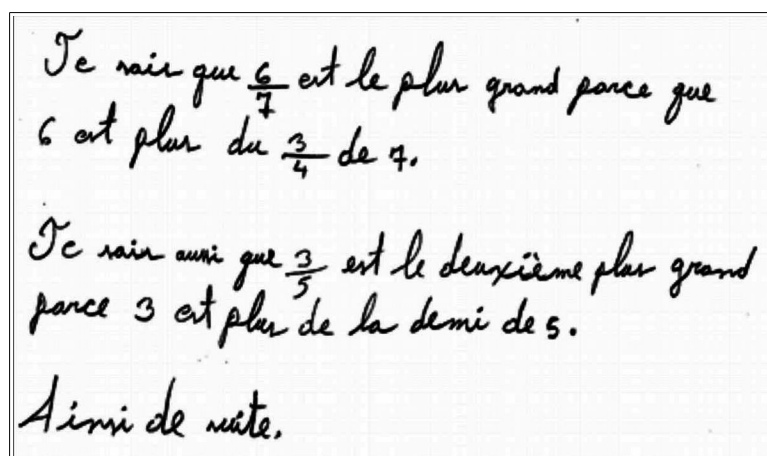 Je sais que 6/7 est le plus grand parce que
6 est plus du 3/4 de 7.
Je sais aussi que 3/5 est le deuxième plus grand
parce 3 est plus de la demi de 5.
Ainsi de suite.